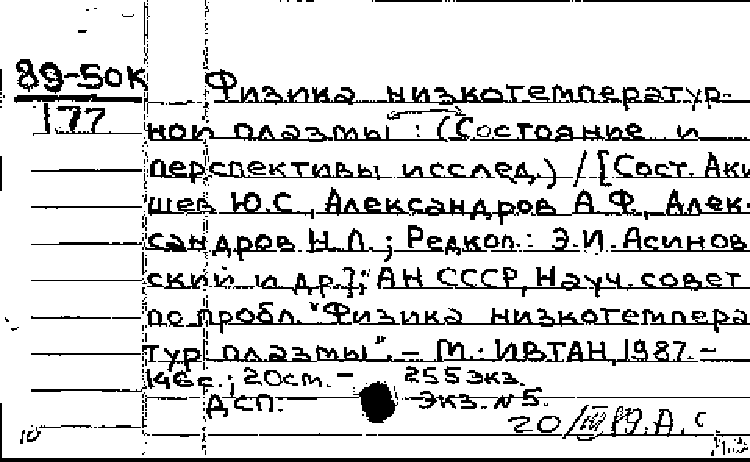 89-50К
177
Физика низкотемператур-
ной плазмы : (Состояние и
перспективы исслед.) / [Сост. Аки
шев Ю.С., Александров А.Ф., Алек-
сандров Н.Л.; Редкол.: Э.И. Асинов
ский и др.]; АН СССР, Науч. совет
по пробл. "Физика низкотемпера
тур плазмы". – М.: ИВТАН, 1987. –
146 с.; 20 см. – 255 экз.
ДСП. Экз. N 5.
20/III 89. А. С.
10